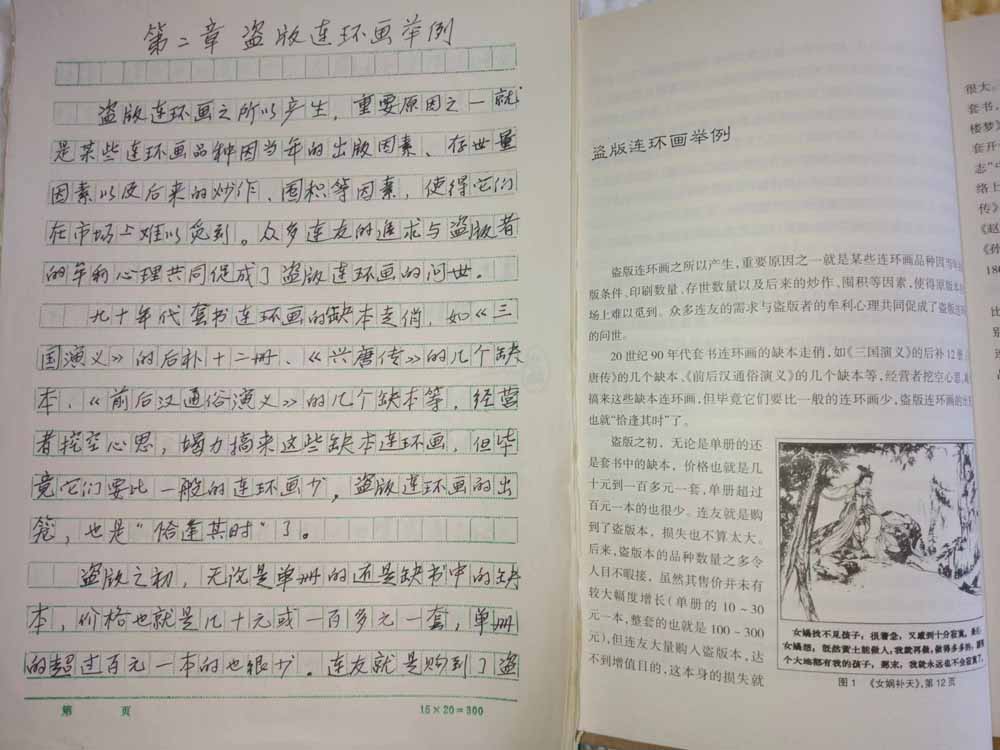 第二章 盗版连环画举例
盗版连环画之所以产生，重要原因之一就
是某些连环画品种因当年的出版因素、存世量
因素以及后来的炒作、囤积等因素，使得它们
在市场上难以觅到。众多连友的追求与盗版者
的牟利心理共同促成了盗版连环画的问世。
九十年代套书连环画的缺本走俏，如《三
国演义》的后补十二册、《兴唐传》的几个缺
本、《前后汉通俗演义》的几个缺本等，经营
者挖空心思，竭力搞来这些缺本连环画，但毕
竟它们要比一般的连环画少，盗版连环画的出
笼，也是"恰逢其时"了。
盗版之初，无论是单册的还是缺书中的缺
本，价格也就是几十元或一百多元一套，单册
的超过百元一本的也很少。连友就是购到了盗
第 页
15×20=300
盗版连环画举例
盗版连环画之所以产生，重要原因之一就是某些连环画品种因当年
版条件、印刷数量、存世数量以及后来的炒作、囤积等因素，使得原版本
场上难以觅到。众多连友的需求与盗版者的牟利心理共同促成了盗版连
的问世。
20世纪90年代套书连环画的缺本走俏，如《三国演义》的后补12册
唐传》的几个缺本、《前后汉通俗演义》的几个缺本等，经营者挖空心思
搞来这些缺本连环画，但毕竟它们要比一般的连环画少，盗版连环画的
也就“恰逢其时”了。
盗版之初，无论是单册的还
是套书中的缺本，价格也就是几
十元到一百多元一套，单册超过
百元一本的也很少。连友就是购
到了盗版本，损失也不算太大。
后来，盗版本的品种数量之多令
人目不暇接，虽然其售价并未有
较大幅度增长(单册的10～30
元一本，整套的也就是100～300
元)，但连友大量购入盗版本，达
不到增值目的，这本身的损失就
女娲找不见孩子，很着急，又感到十分寂寞。
女娲想：既然黄土能做人，我就再做，做得多多的，
个大地都有我的孩子，那末，我就永远也不会寂寞了。
图1 《女娲补天》，第12页
很大。
套书
楼梦》
套开
志”
络上
传》
《赵
《孙
180
比
别